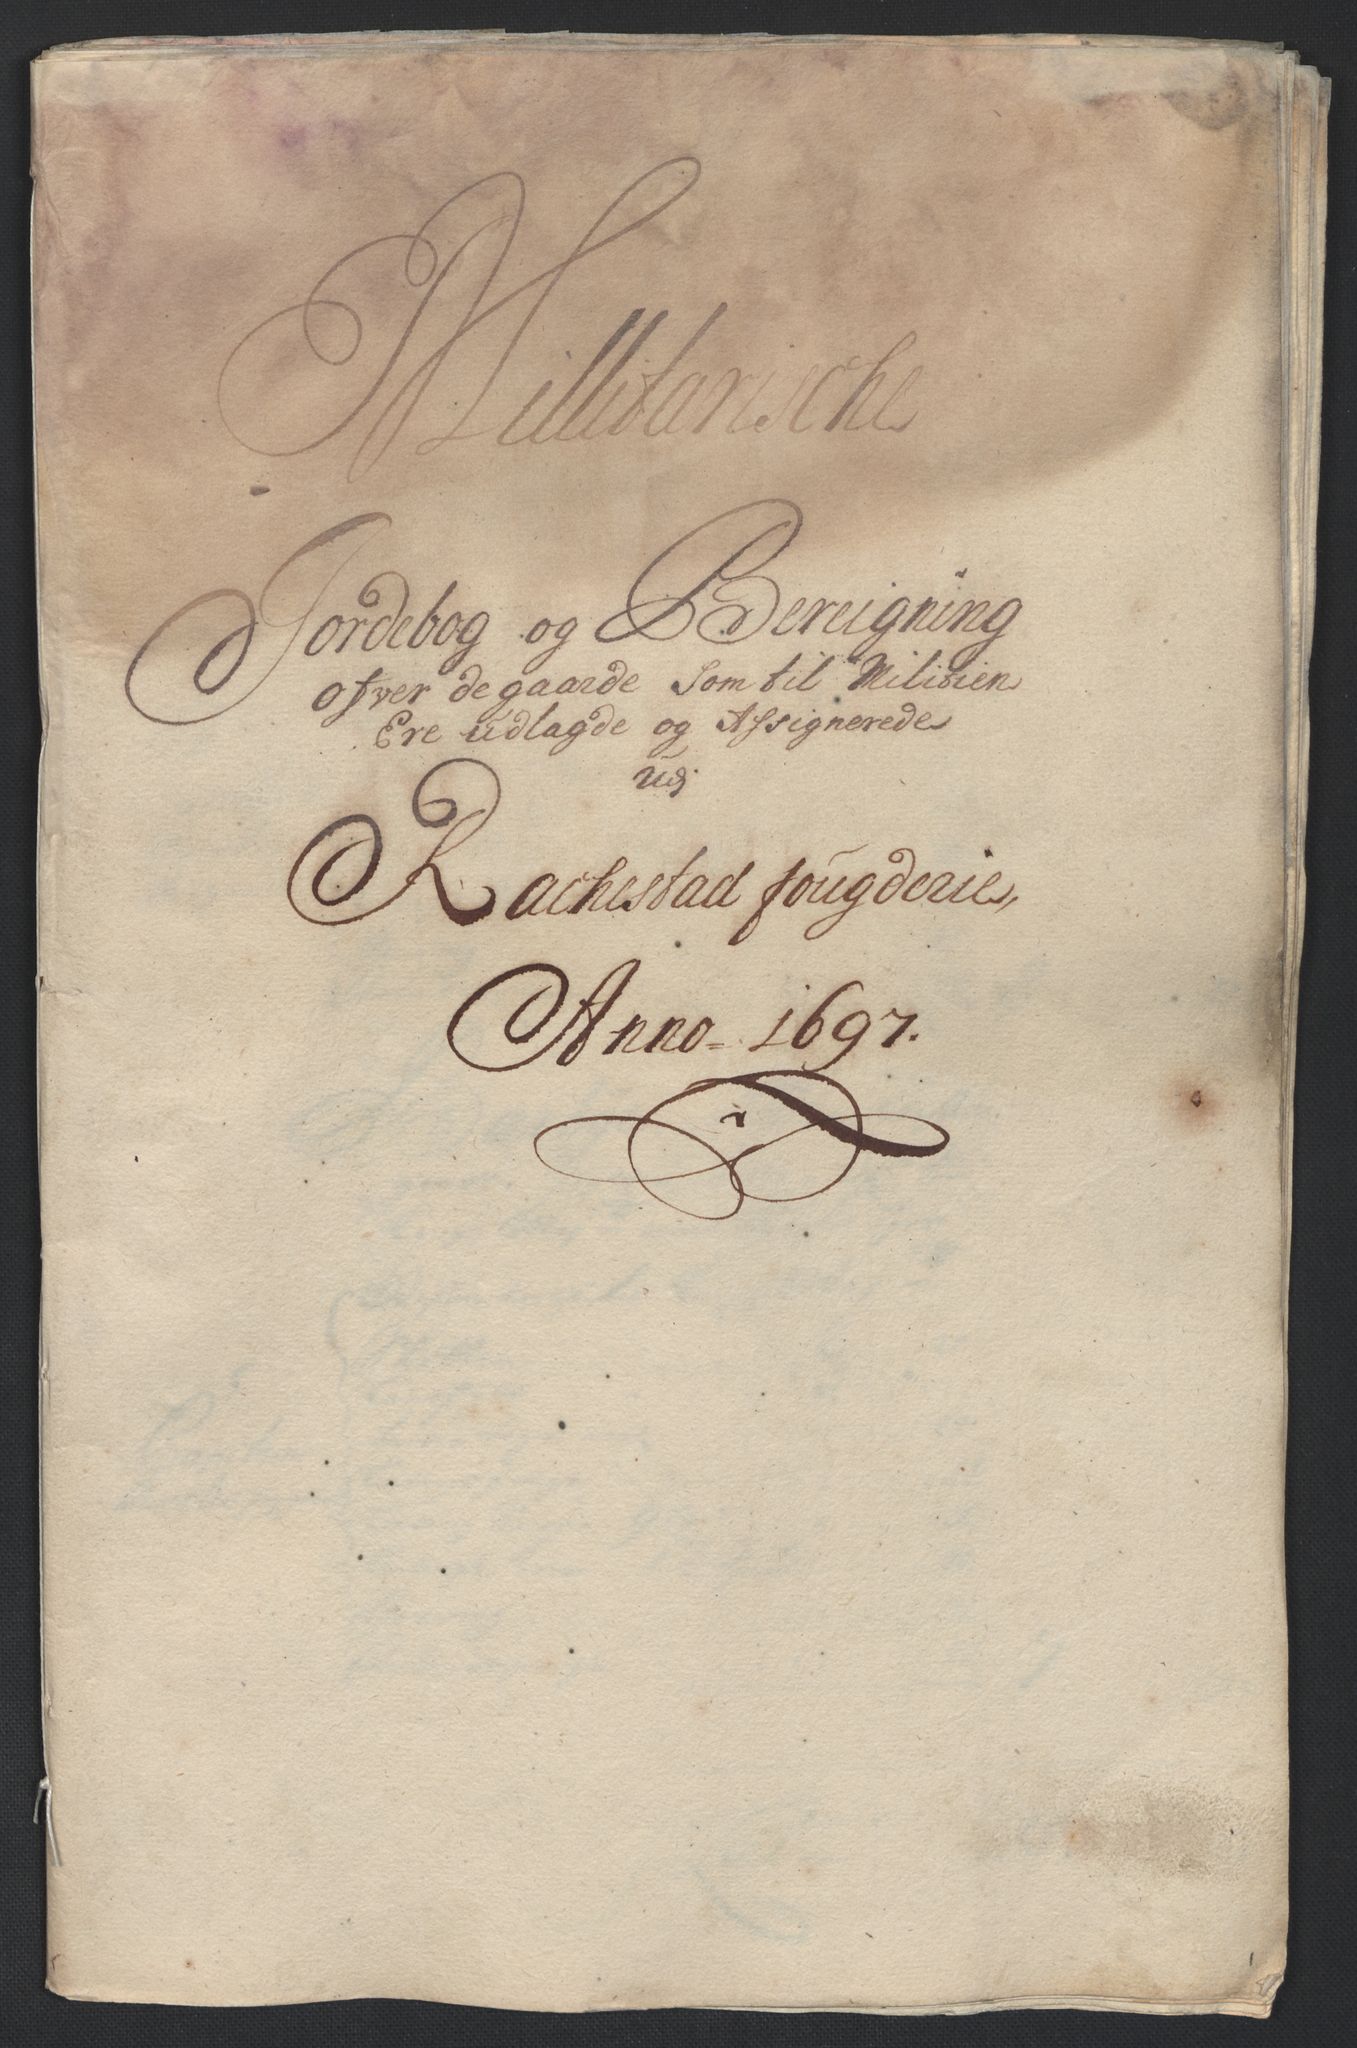 Millitarische
Jordebog og Bereigning
ofver de gaarde som til Militien
Ere udlagde og Assignerede
Udj
Rachestad fougderie,
Anno 1697.